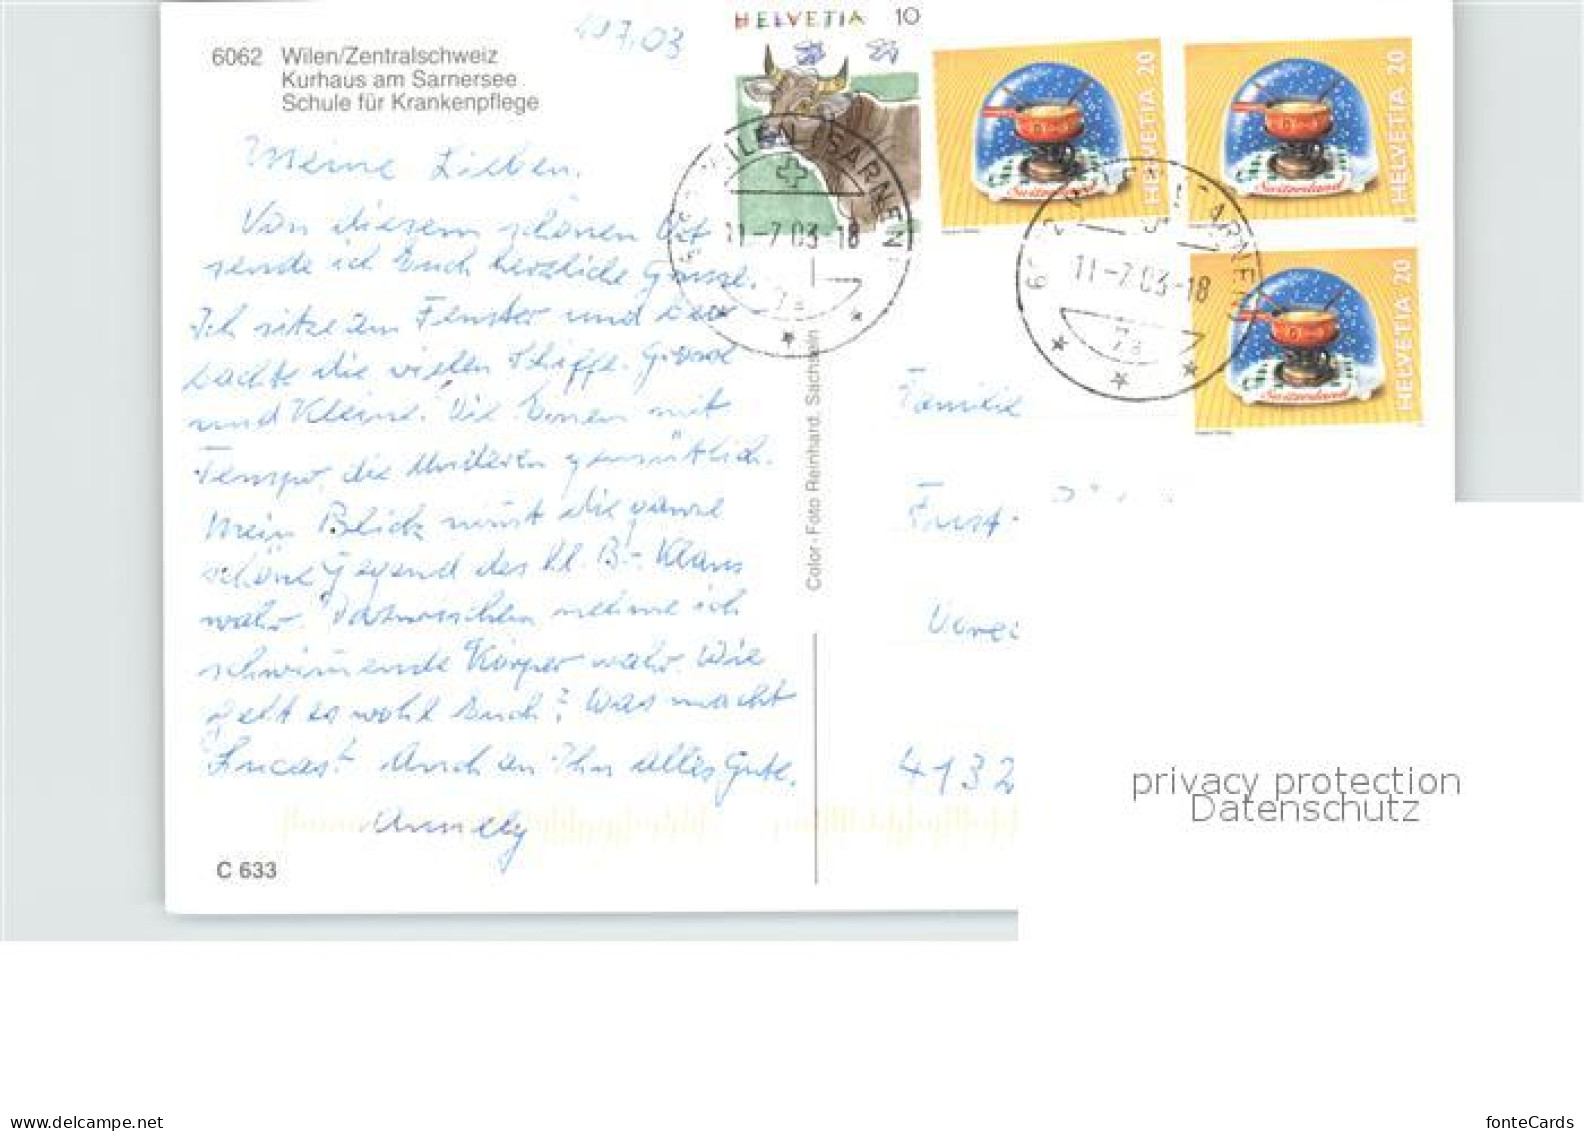 HELVETIA 10
6062 Wilen/Zentralschweiz
Kurhaus am Sarnersee
Schule für Krankenpflege
HELVETIA 20
Switzerland
HELVETIA 20
Switzerland
HELVETIA 20
Switzerland
WILEN (SARNEN)
11-7.03-18
7a
11-7.03-18
7a
Meine Lieben.
Von diesem schönen Ort
sende ich Euch herzliche Grüsse.
Ich sitze am Fenster und beo-
bachte die vielen Schiffe. Gross
und Kleine. Die Einen mit
Tempo, die Anderen gemütlich.
Mein Blick nimt die ganze
schöne Gegend des Hl. Br. Klaus
wahr. Dazwischen nehme ich
schwimende Körper wahr. Wie
geht es wohl Euch? Was macht
Lucas? Auch an Ihn alles Gute.
Color-Foto Reinhard, Sachseln
Familie
4132
C 633
privacy protection
Datenschutz
www.delcampe.net
fonteCards